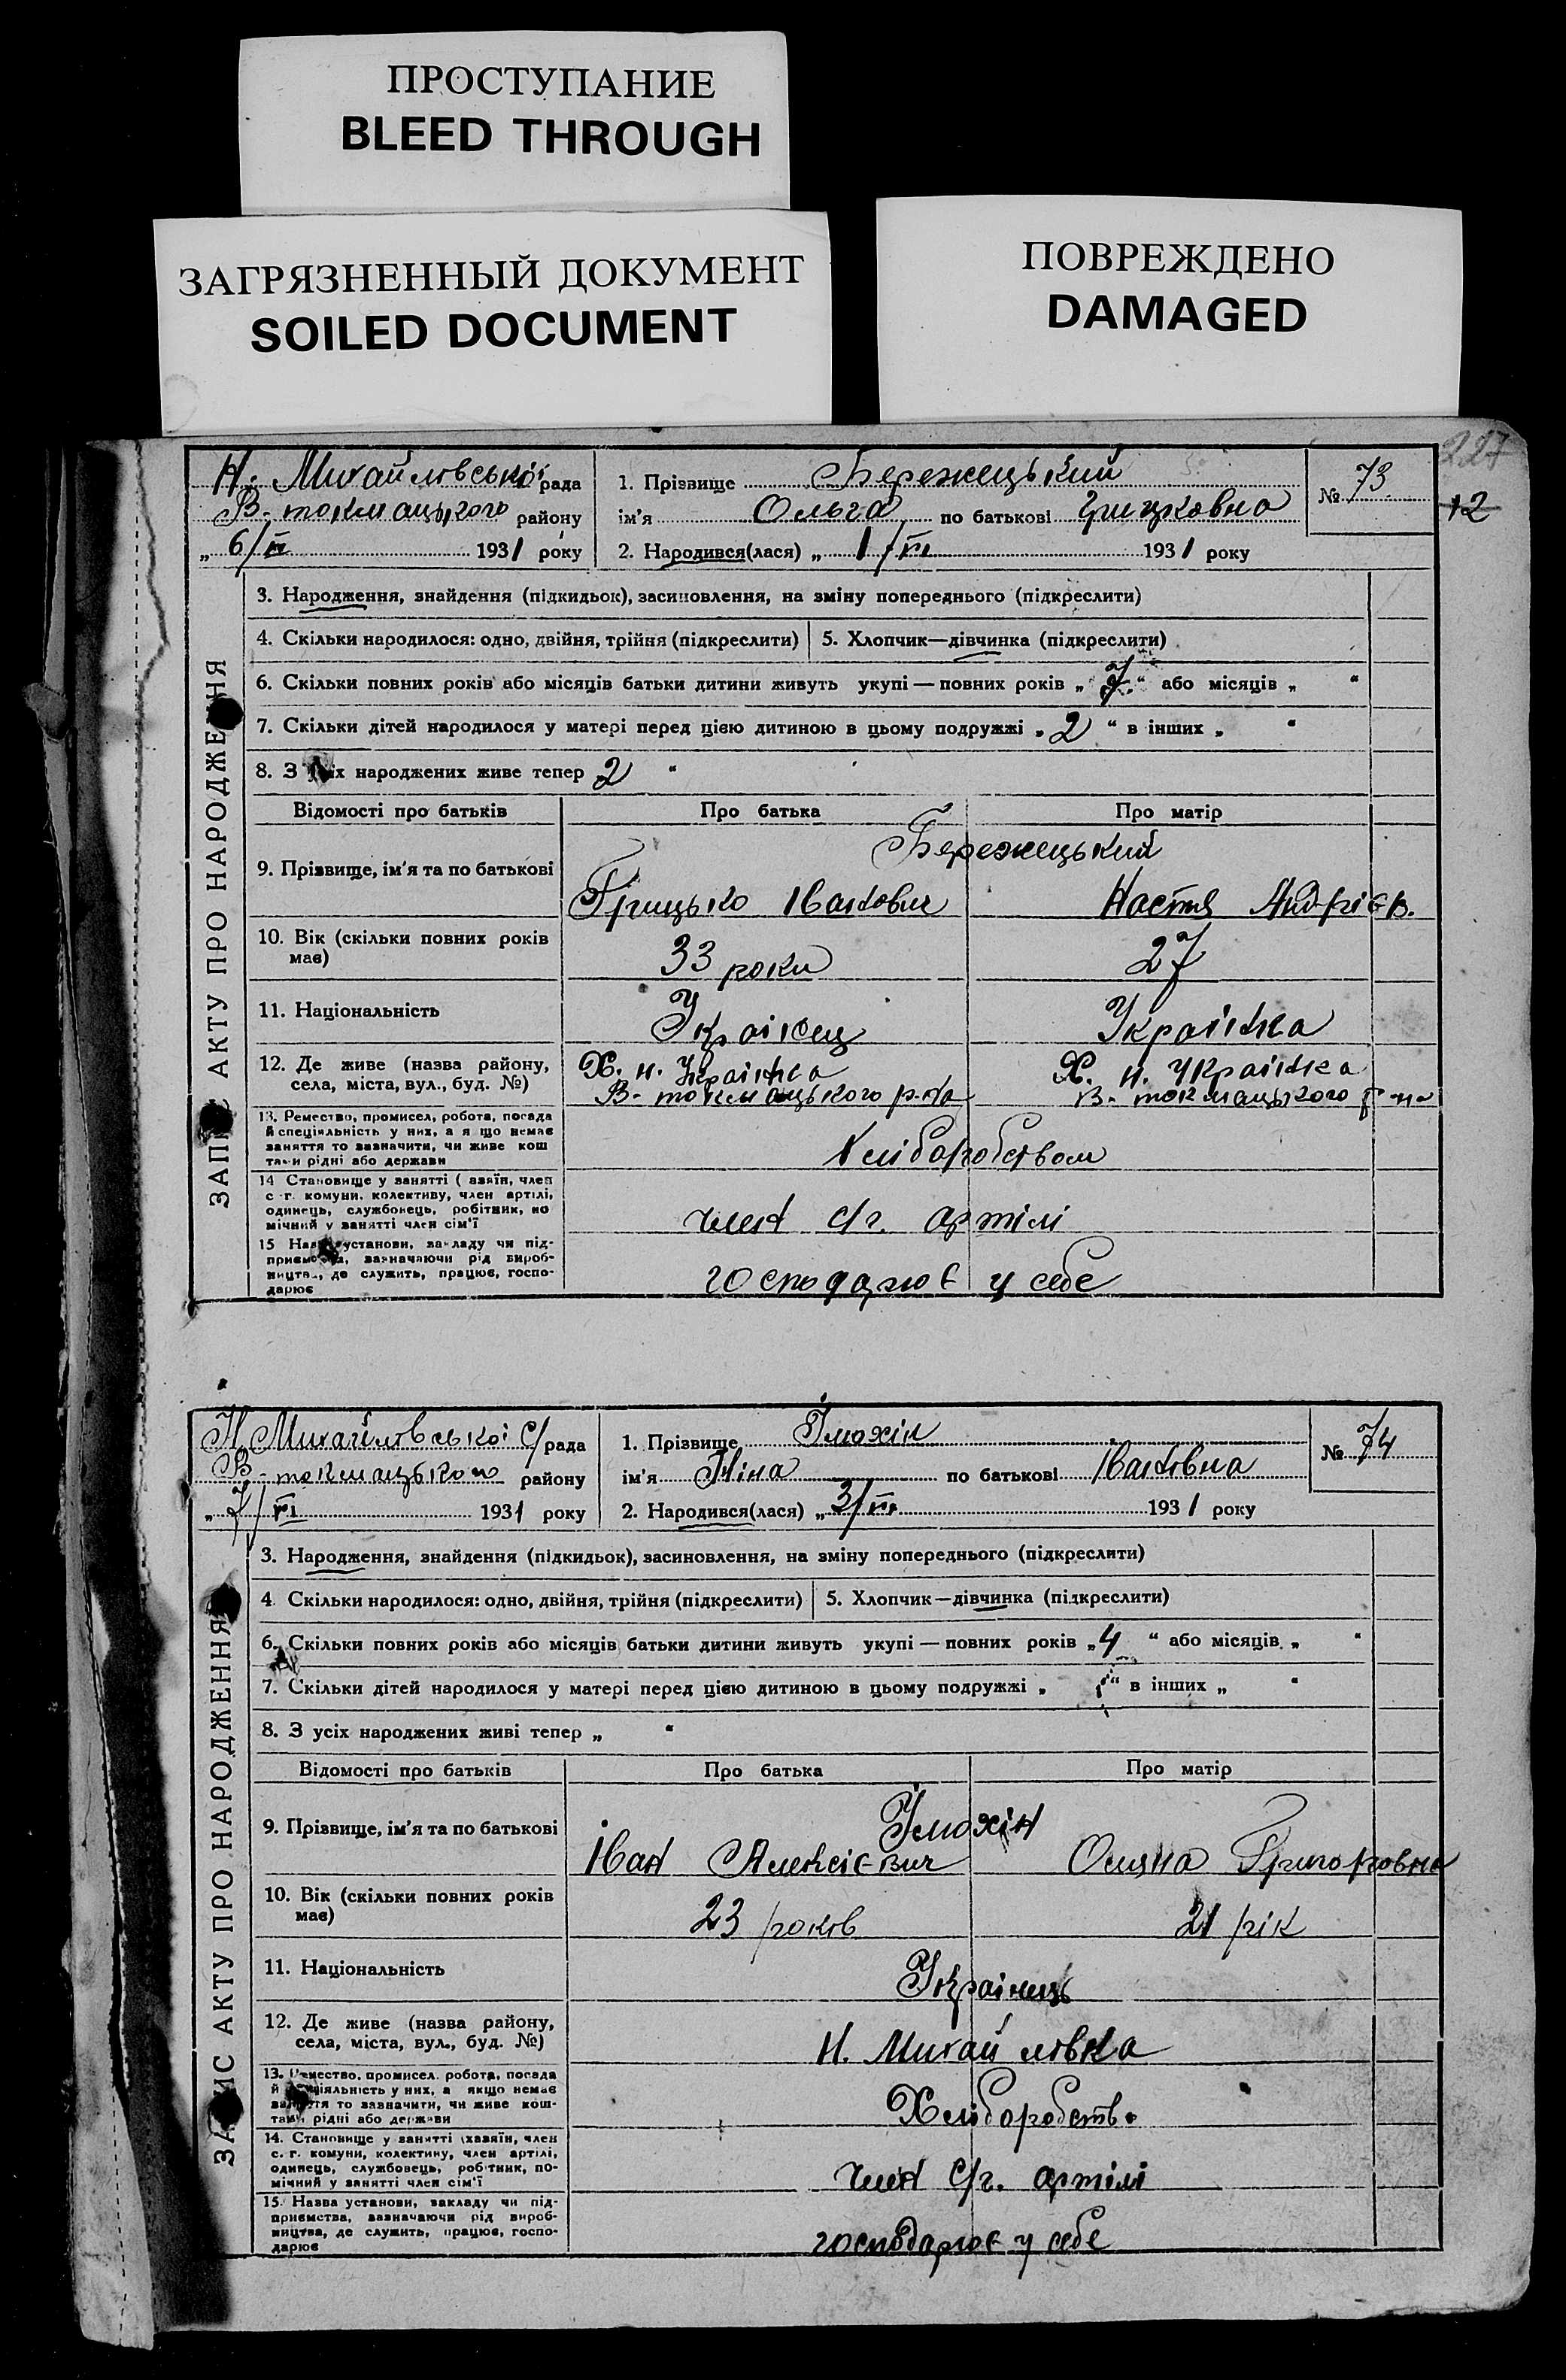 ПРОСТУПАНИЕ
BLEED THROUGH
ЗАГРЯЗНЕННЫЙ ДОКУМЕНТ
SOILED DOCUMENT
ПОВРЕЖДЕНО
DAMAGED
227
12
ЗАПИС АКТУ ПРО НАРОДЖЕННЯ
Н. Михайловської рада
В-токмацького району
„ 6/VI 1931 року
1. Прізвище Бережецький
ім'я Ольга по батькові Грицковна
2. Народився(лася) „ 1/VI 1931 року
№ 73
3. Народження, знайдення (підкидьок), засиновлення, на зміну попереднього (підкреслити)
4. Скільки народилося: одно, двійня, трійня (підкреслити) 5. Хлопчик—дівчинка (підкреслити)
6. Скільки повних років або місяців батьки дитини живуть укупі — повних років „ 7 “ або місяців „ “
7. Скільки дітей народилося у матері перед цією дитиною в цьому подружжі „ 2 “ в інших „ “
8. З усіх народжених живе тепер 2 “
Відомості про батьків Про батька Про матір
Бережецький
9. Прізвище, ім'я та по батькові Грицько Іванович Настя Андрієв.
10. Вік (скільки повних років має) 33 роки 27
11. Національність Українец Українка
12. Де живе (назва району, Х. н. Українка Х. н. Українка
села, міста, вул., буд. №) В-токмацького р-на В-токмацького р-на
13. Ремество, промисел, робота, посада
й спеціяльність у них, а якщо немає
заняття то зазначити, чи живе кош
тами рідні або держави
Хліборобством
14 Становище у занятті (хазяїн, член
с.-г. комуни, колективу, член артілі,
одинець, службовець, робітник, по
мічний у занятті член сім'ї
член с/г. артілі
15 Назва установи, закладу чи під-
приємства, зазначаючи рід вироб-
ництва, де служить, працює, госпо-
дарює
господарює у себе
ЗАПИС АКТУ ПРО НАРОДЖЕННЯ
Н. Михайловської с/рада
В-токмацького району
„ 7/VI 1931 року
1. Прізвище
ім'я Ніна по батькові Івановна
2. Народився(лася) „ 3/VI 1931 року
№ 74
3. Народження, знайдення (підкидьок), засиновлення, на зміну попереднього (підкреслити)
4. Скільки народилося: одно, двійня, трійня (підкреслити) 5. Хлопчик—дівчинка (підкреслити)
6. Скільки повних років або місяців батьки дитини живуть укупі — повних років „ 4 “ або місяців „ “
7. Скільки дітей народилося у матері перед цією дитиною в цьому подружжі „ “ в інших „ “
8. З усіх народжених живі тепер „ “
Відомості про батьків Про батька Про матір
9. Прізвище, ім'я та по батькові Іван Алексієвич Григоровна
10. Вік (скільки повних років має) 23 років 21 рік
11. Національність Українець
12. Де живе (назва району,
села, міста, вул., буд. №) Н. Михайловка
13. Ремество, промисел, робота, посада
й спеціяльність у них, а якщо немає
заняття то зазначити, чи живе кош-
тами рідні або держави
Хліборобство
14. Становище у занятті (хазяїн, член
с. г. комуни, колективу, член артілі,
одинець, службовець, робітник, по-
мічний у занятті член сім'ї
член с/г. артілі
15. Назва установи, закладу чи під-
приємства, зазначаючи рід вироб-
ництва, де служить, працює, госпо-
дарює
господарює у себе